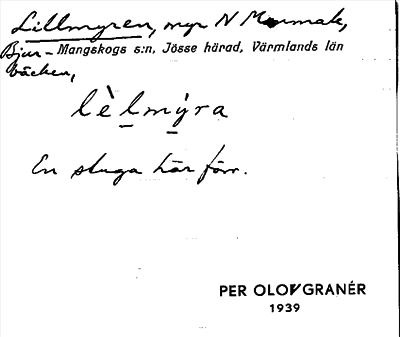 Lillmyren, myr N Mermak,
Bjur- Mangskogs s:n, Jösse härad, Värmlands län
bäcken,
lèlmýra
En stuga här förr.
PER OLOV GRANÉR
1939